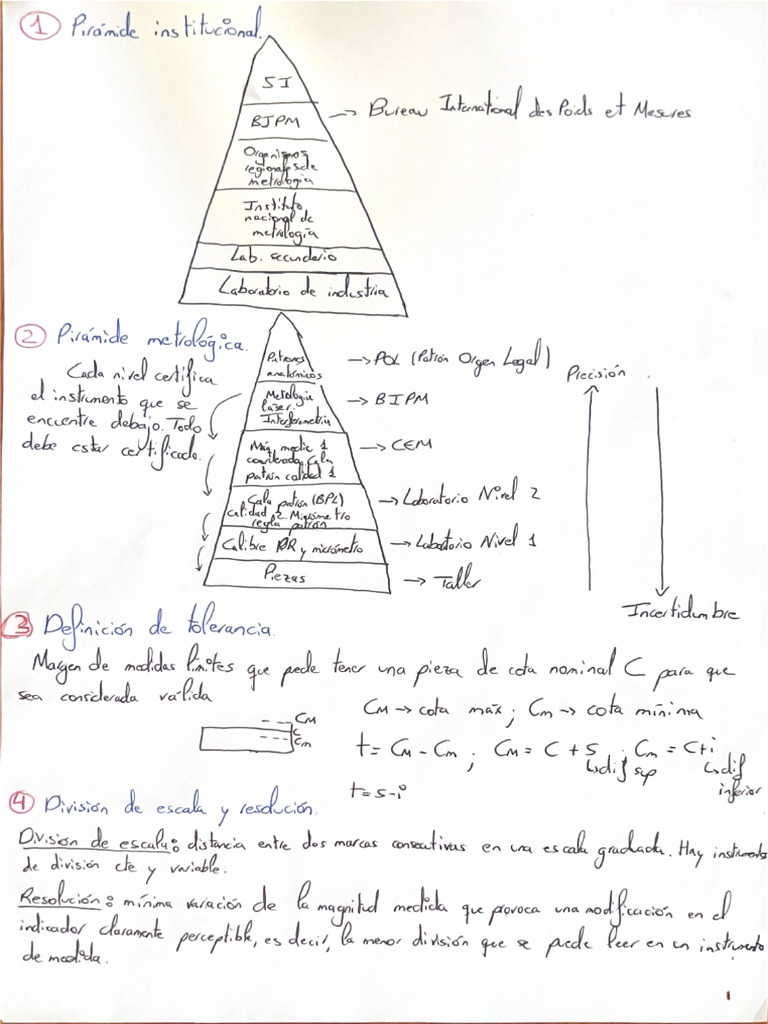 1 Pirámide institucional.
SI
BIPM → Bureau International des Poids et Mesures
Organismos
regionales de
metrología
Instituto
nacional de
metrología
Lab. secundario
Laboratorio de industria
2 Pirámide metrológica.
Cada nivel certifica
el instrumento que se
encuentre debajo. Todo
debe estar certificado.
Patrones
anatómicos → POL (Patrón Origen Legal)
Metrología
laser.
Interferometría → BIPM
Máq medic 1
coordenada. Cala
patrón calidad 1 → CEM
Cala patrón (BPL)
calidad 2. Micrómetro
regla patrón → Laboratorio Nivel 2
Calibre PR y micrómetro → Laboratorio Nivel 1
Piezas → Taller
Precisión
Incertidumbre
3 Definición de tolerancia.
Margen de medidas límites que puede tener una pieza de cota nominal C para que
sea considerada válida
CM
C
Cm
CM → cota máx ; Cm → cota mínima
t = CM - Cm ; CM = C + s ; Cm = C + i
↳ dif sup
↳ dif inferior
t = s - i
4 División de escala y resolución.
División de escala: distancia entre dos marcas consecutivas en una escala graduada. Hay instrumentos
de división cte y variable.
Resolución: mínima variación de la magnitud medida que provoca una modificación en el
indicador claramente perceptible, es decir, la menor división que se puede leer en un instrumento
de medida.
1